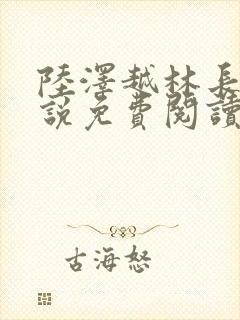 陸澤越林長
說免費閱讀
古海怒